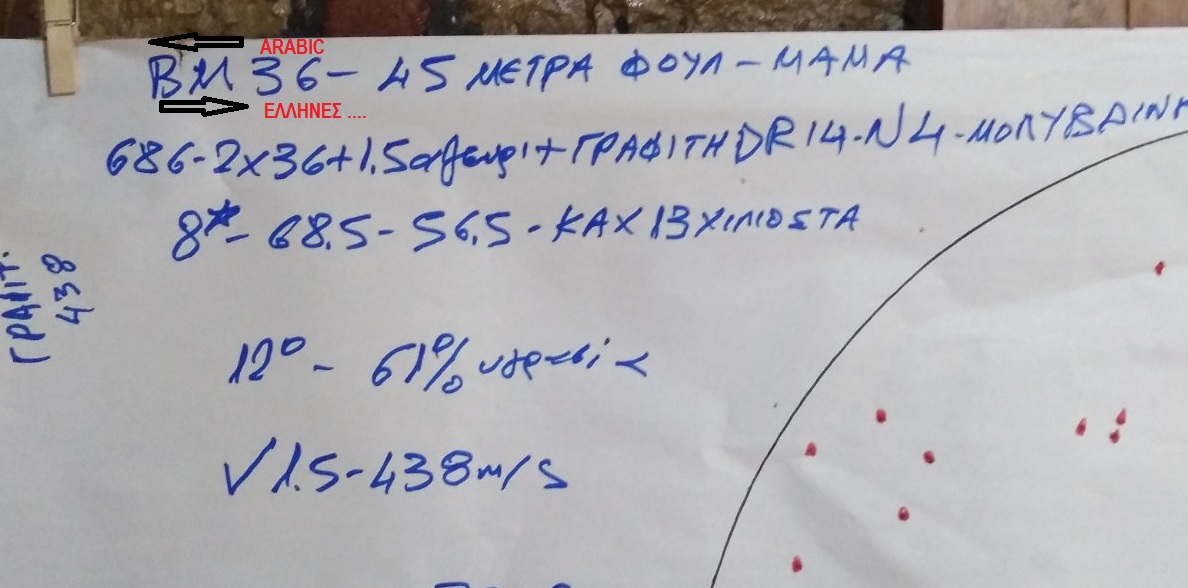 ARABIC
BM 36 - 45 ΜΕΤΡΑ ΦΟΥΛ - ΜΑΜΑ
ΕΛΛΗΝΕΣ ....
686-2x36+1.5 αλευρι + ΓΡΑΦΙΤΗ DR14-N4-ΜΟΛΥΒΔΙΝ
8*- 68.5 - 56.5 - ΚΑΧ 13 ΧΙΛΙΟΣΤΑ
ΓΡΑΦΙΤ.
438
12° - 61% υγρασία
V1.5-438m/s